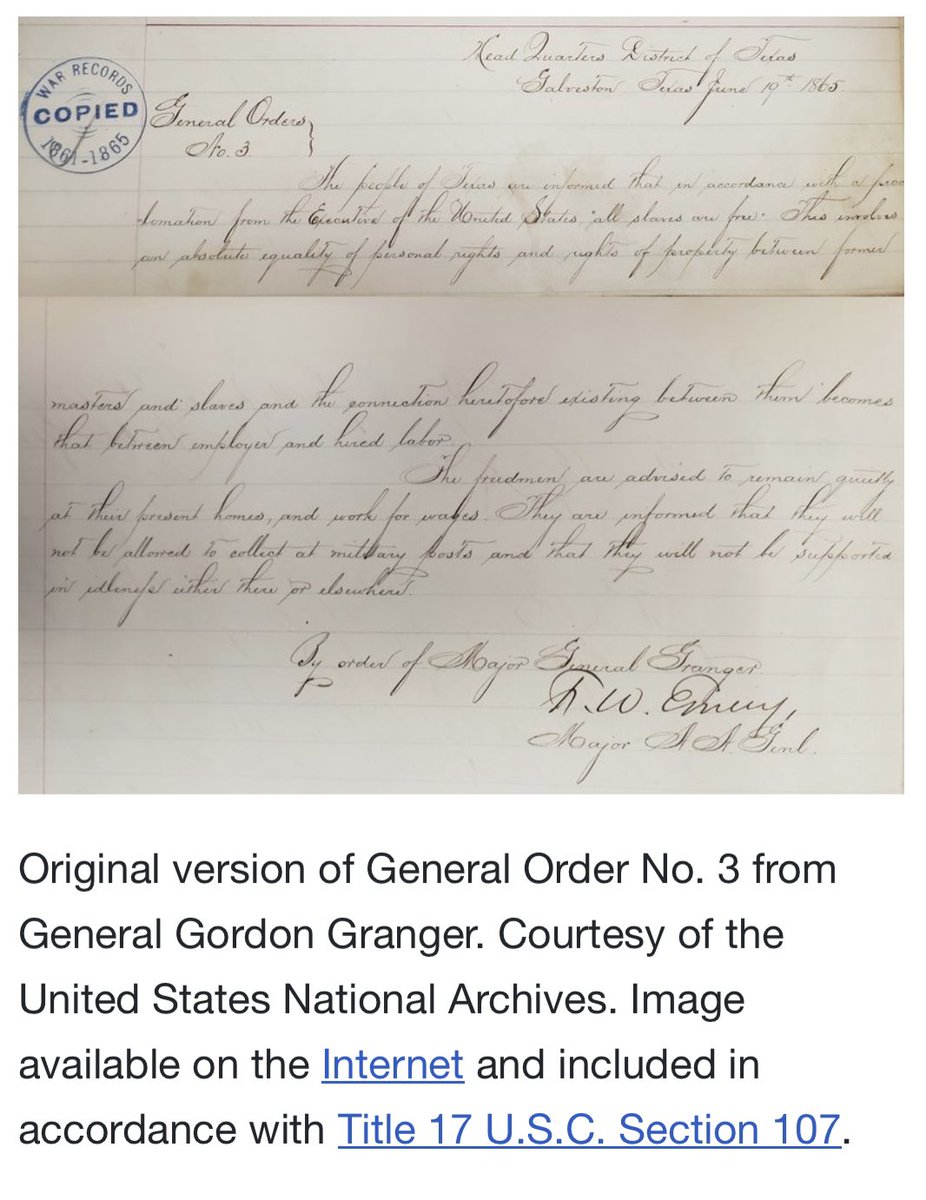 WAR RECORDS
COPIED
1861-1865
Head Quarters District of Texas
Galveston Texas June 19th 1865.
General Orders
No. 3.
The people of Texas are informed that in accordance with a proc
lamation from the Executive of the United States "all slaves are free." This involves
an absolute equality of personal rights and rights of property between former
masters and slaves and the connection heretofore existing between them becomes
that between employer and hired labor.
The freedmen are advised to remain quietly
at their present homes, and work for wages. They are informed that they will
not be allowed to collect at military posts and that they will not be supported
in idleness either there or elsewhere.
By order of Major General Granger
F. W. Emery,
Major A. A. Genl.
Original version of General Order No. 3 from
General Gordon Granger. Courtesy of the
United States National Archives. Image
available on the Internet and included in
accordance with Title 17 U.S.C. Section 107.